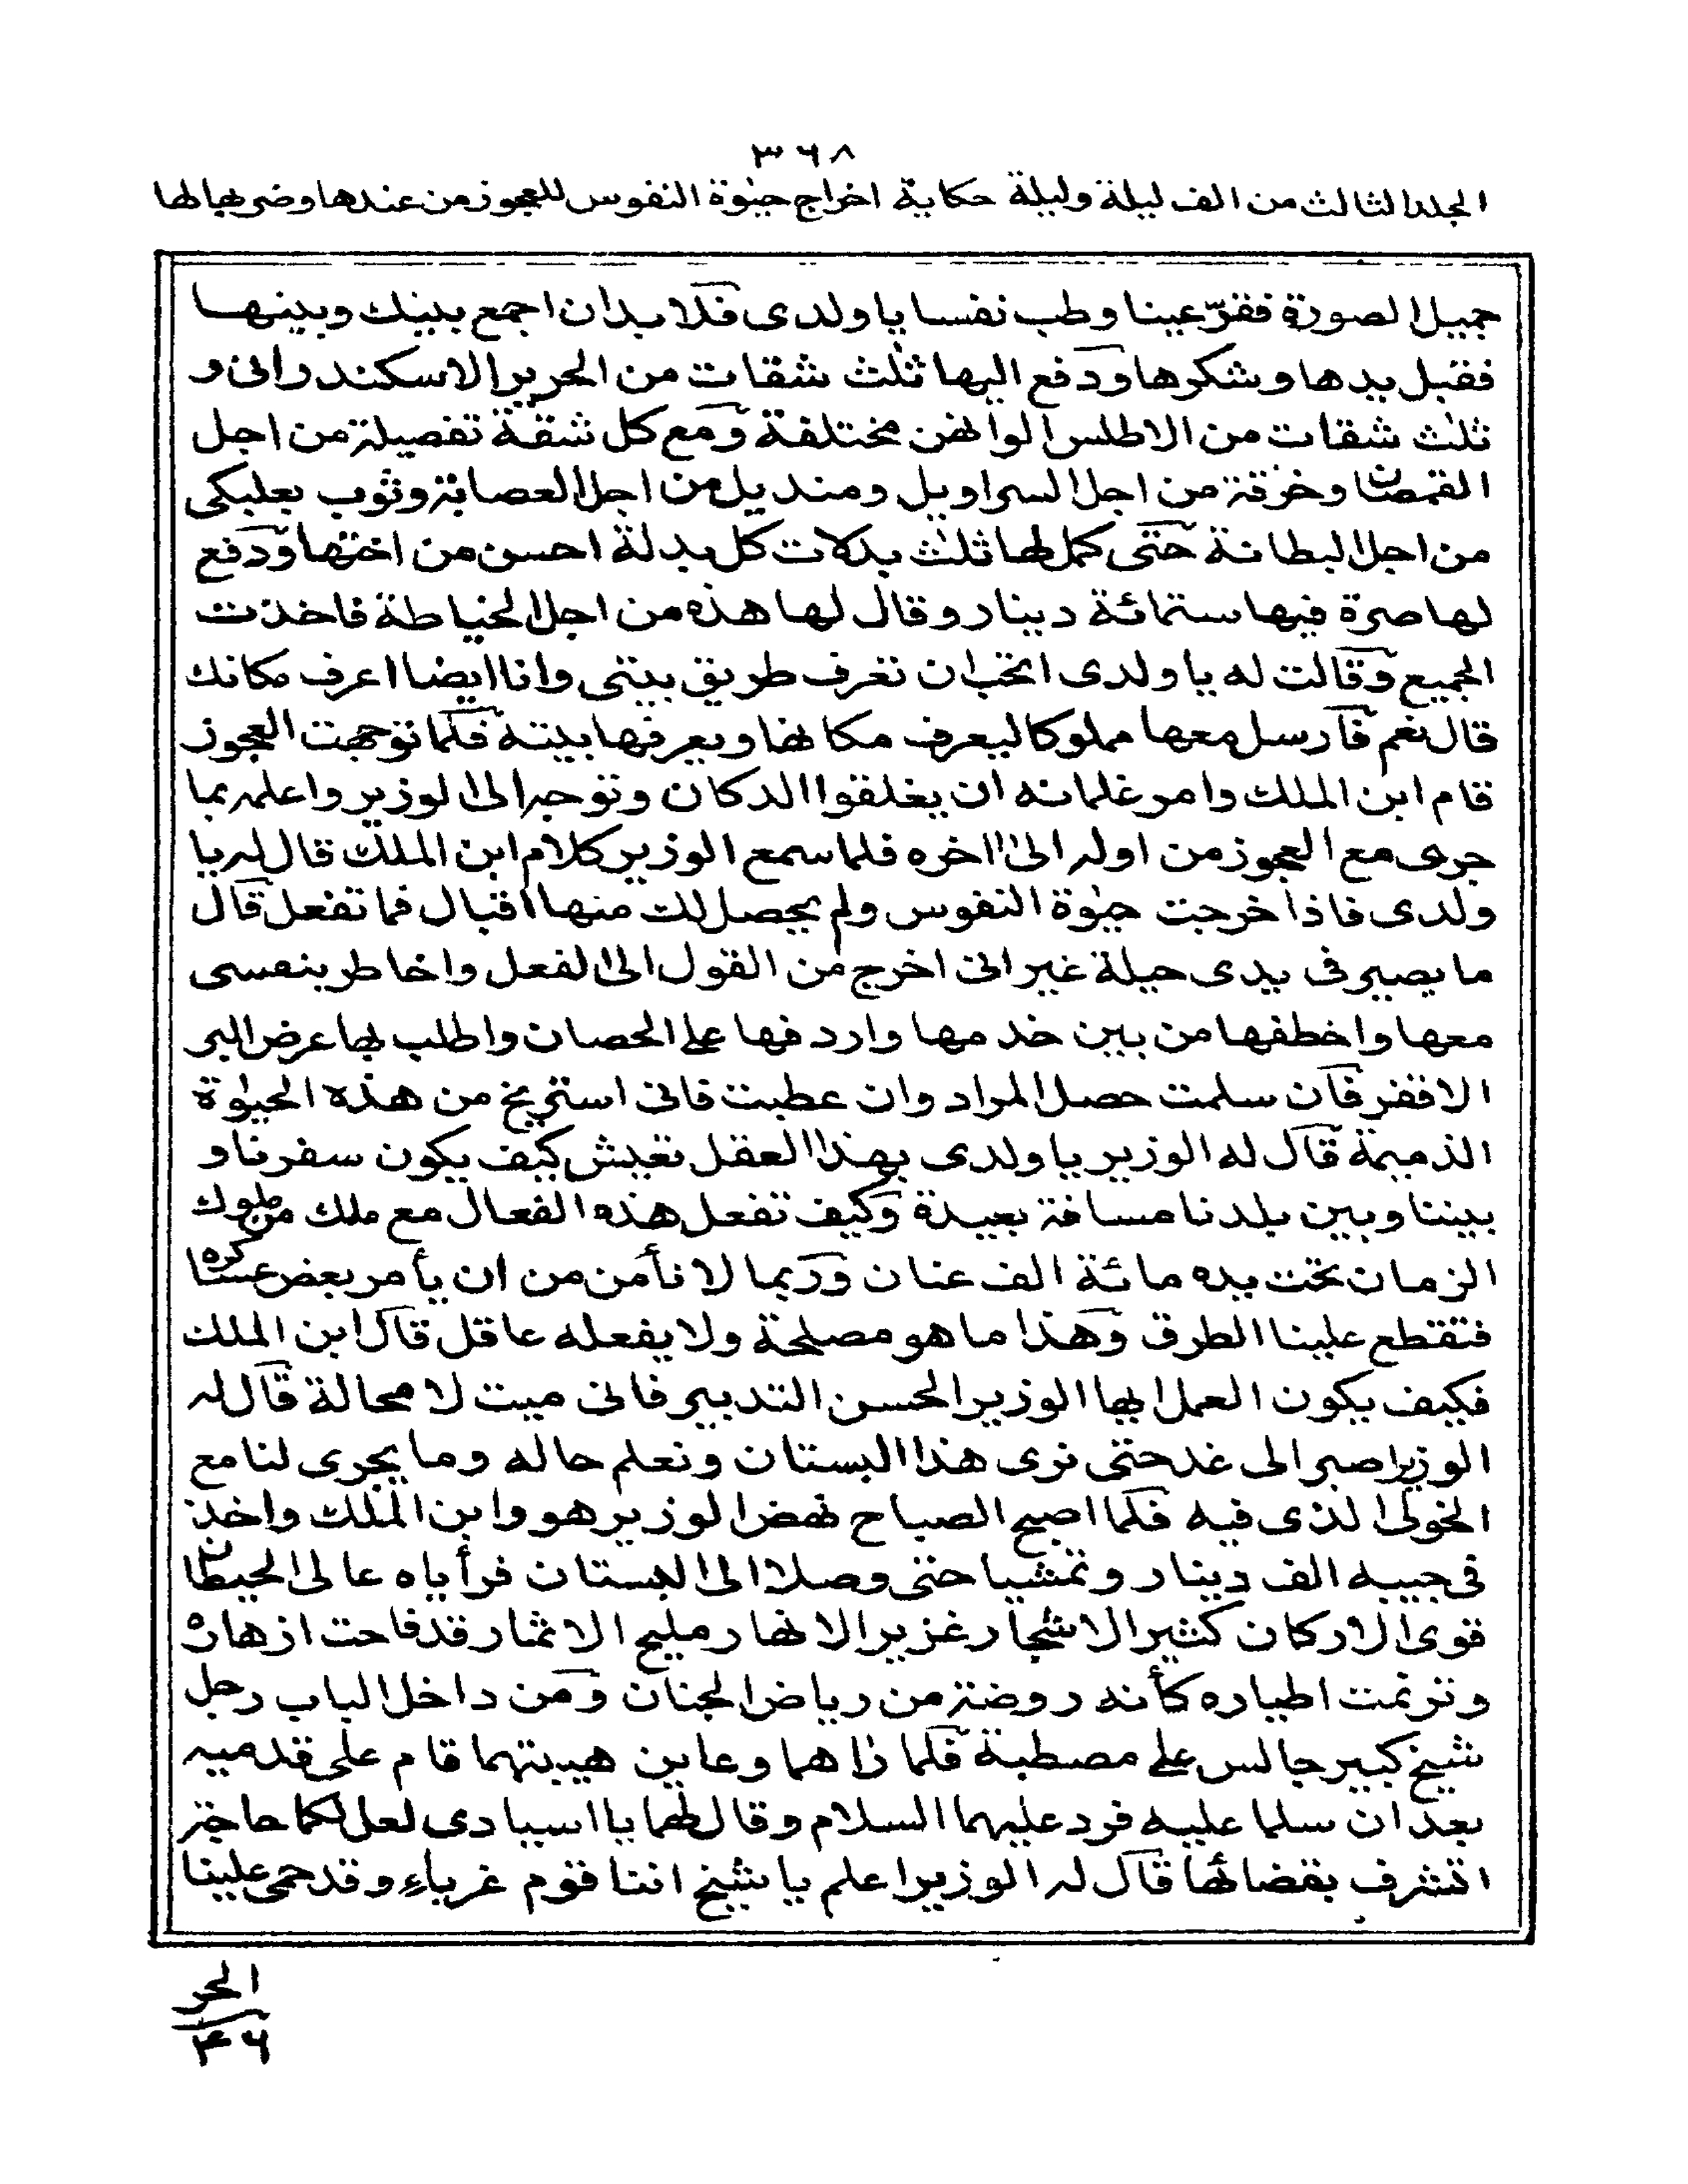 ٣٦٨
المجلد الثالث من الف ليلة وليلة حكاية اخراج حيٰوة النفوس للعجوز من عندها وضربها لها
جميل الصورة فقرّ عينا وطب نفسا يا ولدى فلا بد ان اجمع بينك وبينها
فقبل يدها وشكرها ودفع اليها ثلٰث شقات من الحرير الاسكندرانى و
ثلٰث شقات من الاطلس الوانهن مختلفة ومع كل شقة تفصيلة من اجل
القمصان وخرقة من اجل السراويل ومنديل من اجل العصابة وثوب بعلبكى
من اجل البطانة حتى كمل لها ثلٰث بدلات كل بدلة احسن من اختها ودفع
لها صرة فيها ستمائة دينار وقال لها هذه من اجل الخياطة فاخذت
الجميع وقالت له يا ولدى اتحب ان تعرف طريق بيتى وانا ايضا اعرف مكانك
قال نعم فارسل معها مملوكا ليعرف مكانها ويعرفها بيته فلما توجهت العجوز
قام ابن الملك وامر غلمانه ان يغلقوا الدكان وتوجه الى الوزير واعلمه بما
جرى مع العجوز من اوله الى اخره فلما سمع الوزير كلام ابن الملك قال له يا
ولدى فاذا خرجت حيٰوة النفوس ولم يحصل لك منها اقبال فما تفعل قال
ما يصير فى يدى حيلة غير انى اخرج من القول الى الفعل واخاطر بنفسى
معها واخطفها من بين خدمها واردفها على الحصان واطلب بها عرض البر
الاقفر فان سلمت حصل المراد وان عطبت فانى استريح من هذه الحيٰوة
الذميمة قال له الوزير يا ولدى بهذا العقل تعيش كيف يكون سفرنا و
بيننا وبين بلدنا مسافة بعيدة وكيف تفعل هذه الفعال مع ملك من ملوك
الزمان تحت يده مائة الف عنان وربما لا نأمن من ان يأمر بعض عساكره
فتقطع علينا الطرق وهذا ما هو مصلحة ولا يفعله عاقل قال ابن الملك
فكيف يكون العمل ايها الوزير الحسن التدبير فانى ميت لا محالة قال له
الوزير اصبر الى غد حتى نرى هذا البستان ونعلم حاله وما يجرى لنا مع
الخولى الذى فيه فلما اصبح الصباح نهض الوزير هو وابن الملك واخذ
فى جيبه الف دينار وتمشيا حتى وصلا الى البستان فرأياه عالى الحيطان
قوى الاركان كثير الاشجار غزير الانهار مليح الاثمار قد فاحت ازهاره
وترنمت اطياره كأنه روضة من رياض الجنان ومن داخل الباب رجل
شيخ كبير جالس على مصطبة فلما راهما وعاين هيبتهما قام على قدميه
بعد ان سلما عليه فرد عليهما السلام وقال لهما يا اسيادى لعل لكما حاجة
اتشرف بقضائها قال له الوزير اعلم يا شيخ اننا قوم غرباء وقد حمى علينا
الحر
٤٦